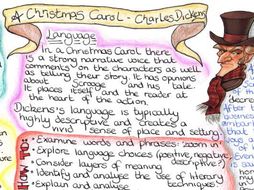 A Christmas Carol - Charles Dickens
Language
In A Christmas Carol there
is a strong narrative voice that
comments on the characters as well
as telling their story. It has opinions
about Scrooge and his tale.
It places itself and the reader at
the heart of the action.
Dickens's language is typically
highly descriptive and creates
vivid sense of place and setting.
HOW TO:
• Examine words and phrases: zoom in
• Explore language choices (positive, negative,
• Consider layers of meaning descriptive
• Identify and analyse the use of literary
• Explain and analyse techniques